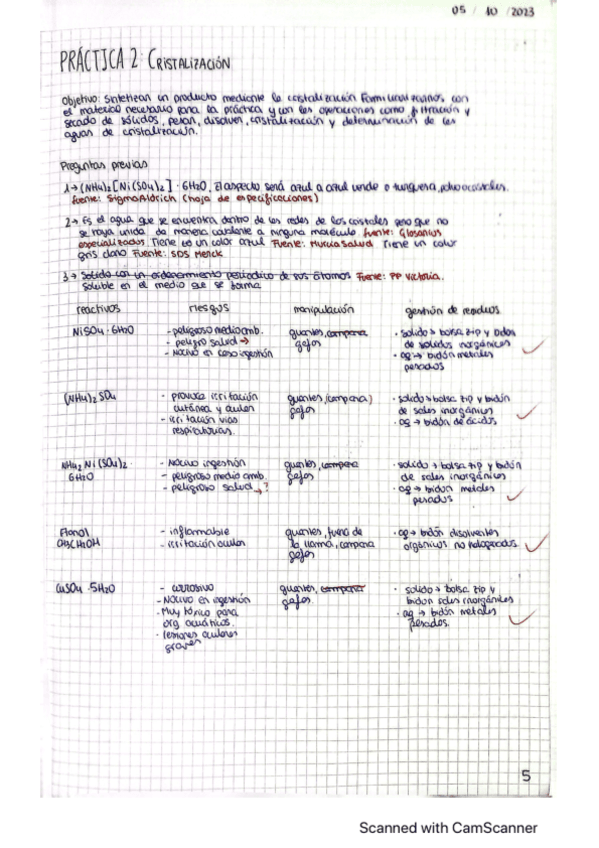 05 / 10 / 2023
PRÁCTICA 2: CRISTALIZACIÓN
Objetivo: Sintetizan un producto mediante la cristalización. Familiarizarnos con
el material necesario para la práctica y con las operaciones como filtración y
secado de sólidos, pesar, disolver, cristalización y determinación de las
aguas de cristalización.
Preguntas previas
1→ (NH4)2[Ni(SO4)2]·6H2O, El aspecto será azul a azul verde o turquesa, polvo o cristales.
fuente: SigmaAldrich (hoja de especificaciones)
2→ Es el agua que se encuentra dentro de las redes de los cristales pero que no
se haya unida de manera covalente a ninguna molécula fuente: Glosarios
especializados Tiene es un color azul Fuente: MurciaSalud Tiene un color
gris claro Fuente: SDS Merck
3→ Solido con un ordenamiento periodico de sus átomos Fuente: PP Victoria.
Soluble en el medio que se forma
reactivos riesgos manipulación gestión de residuos
NiSO4·6H2O - peligroso medioamb. guantes, campana · solido → bolsa zip y
- peligro salud → gafas de solidos inorgánicos
- Nocivo en caso ingestión · aq → bidón metales
pesados
(NH4)2SO4 - provoca irritación guantes, (campana) · solido → bolsa zip y bidón
cutánea y ocular gafas de sales inorgánicos
- irritación vias · aq → bidón de ácidos
respiratorias.
NH42Ni(SO4)2· - Nocivo ingestión guantes, campana · solido → bolsa zip y bidón
6H2O - peligroso medio amb. gafas de sales inorgánicos
- peligroso salud → ? · aq → bidon metales
pesados
Etanol - inflamable guantes, fuera de · aq → bidón disolventes
CH3CH2OH - irritación ocular la llama, campana orgánicos no halogenados.
gafas
CuSO4·5H2O - corrosivo guantes, campana · solido → bolsa zip y
- Nocivo en ingestión gafas. bidon sales inorgánicos
- Muy tóxico para · aq → bidón metales
org acuáticos. pesados.
- lesiones oculares
graves
5
Scanned with CamScanner